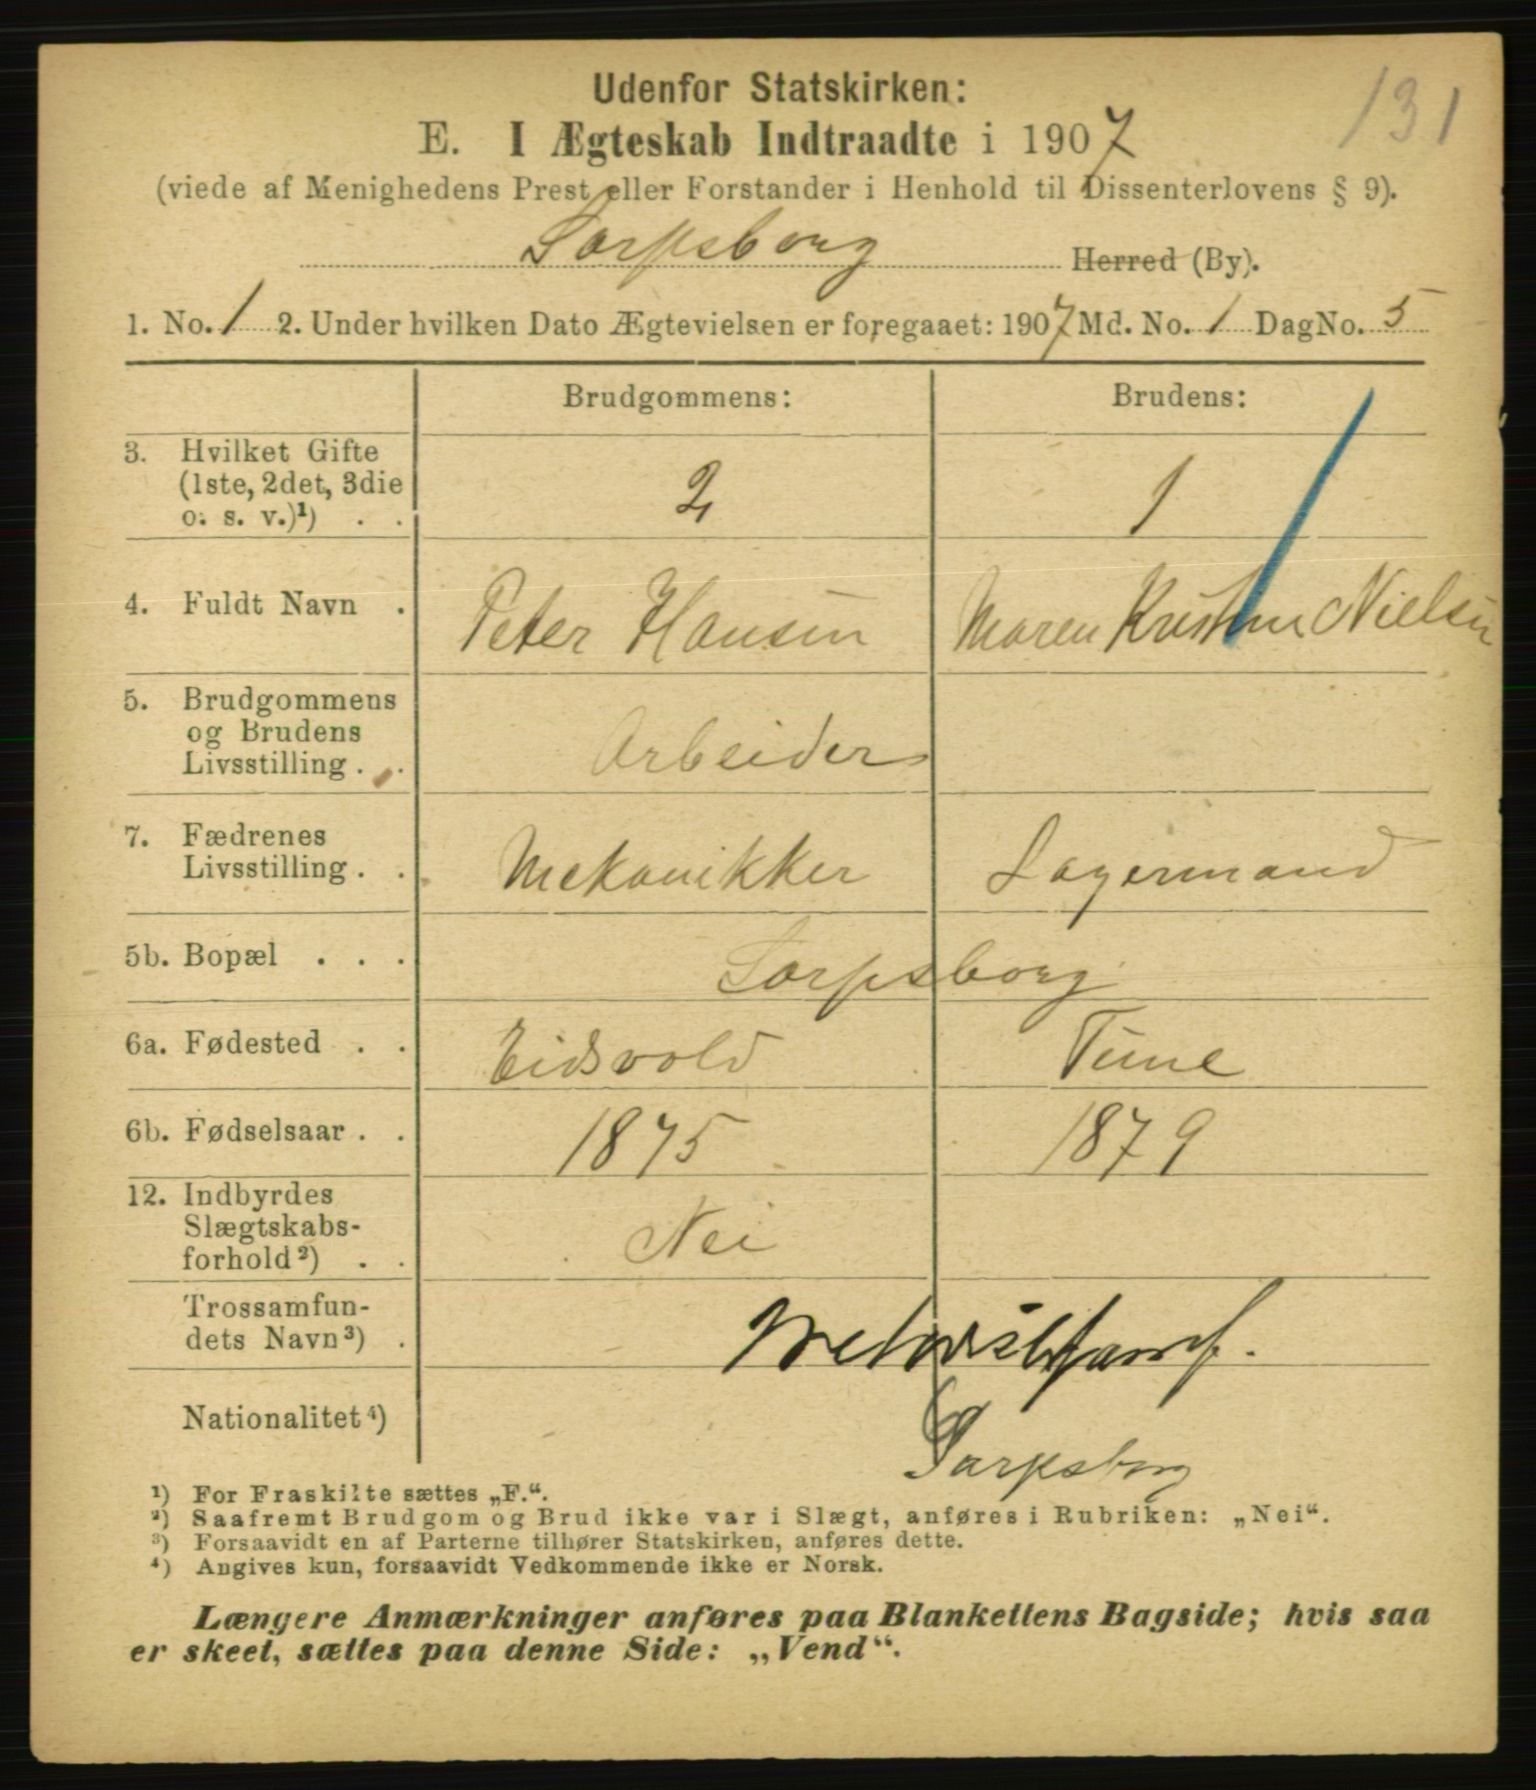 131
Udenfor Statskirken:
E. I Ægteskab Indtraadte i 1907
(viede af Menighedens Prest eller Forstander i Henhold til Dissenterlovens § 9).
Sarpsborg Herred (By).
1. No. 1 2. Under hvilken Dato Ægtevielsen er foregaaet: 1907 Md. No. 1 Dag No. 5
Brudgommens: Brudens:
3. Hvilket Gifte
(1ste, 2det, 3die
o. s. v.)¹) . . 2 1
4. Fuldt Navn . Peter Hansen Maren Kristine Nielsen
5. Brudgommens
og Brudens
Livsstilling . . Arbeider
7. Fædrenes
Livsstilling . . Mekanikker Lagermand
5b. Bopæl . . . Sarpsborg
6a. Fødested . . Eidsvold Tune
6b. Fødselsaar . . 1875 1879
12. Indbyrdes
Slægtskabs-
forhold²) . . Nei
Trossamfun-
dets Navn³) . Metodistsamf.
Sarpsborg
Nationalitet⁴)
¹) For Fraskilte sættes „F.“.
²) Saafremt Brudgom og Brud ikke var i Slægt, anføres i Rubriken: „Nei“.
³) Forsaavidt en af Parterne tilhører Statskirken, anføres dette.
⁴) Angives kun, forsaavidt Vedkommende ikke er Norsk.
Længere Anmærkninger anføres paa Blankettens Bagside; hvis saa
er skeet, sættes paa denne Side: „Vend“.